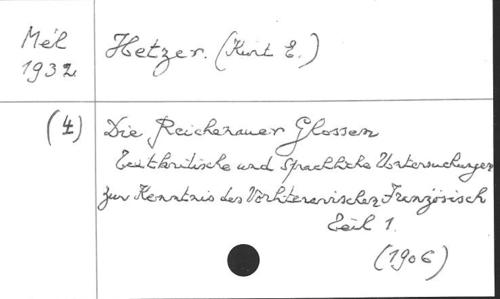 Mél
1932
Hetzer. (Kurt E.)
(4)
Die Reichenauer Glossen
Textkritische und Sprachliche Untersuchungen
zur Kenntnis des Vorliterarischen Französisch
Teil 1.
(1906)